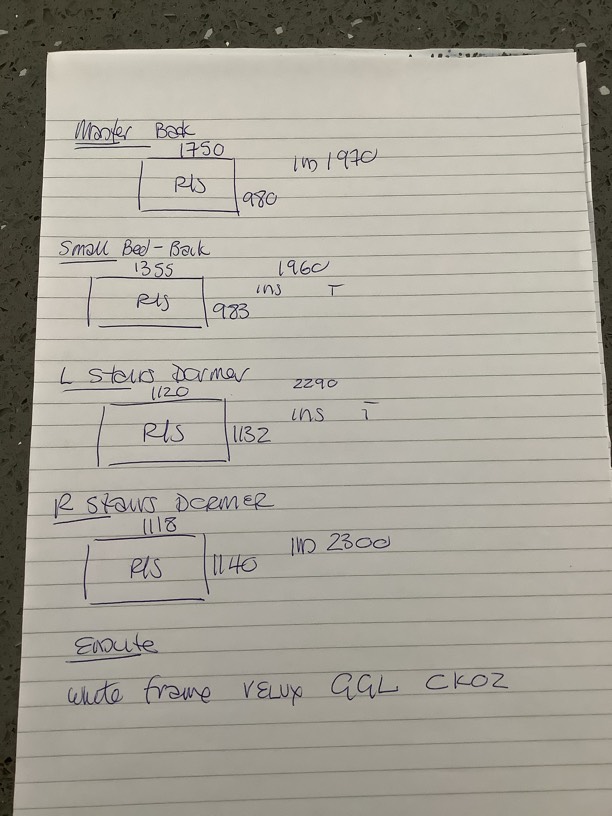 Master Back
1750
in 1970
R/S
980
Small Bed - Back
1355
1960
ins T
R/S
983
L Stairs Dormer
1120
2290
ins T
R/S
1132
R Stairs DORMER
1118
in 2300
R/S
1140
Ensuite
white frame VELUX GGL CK02